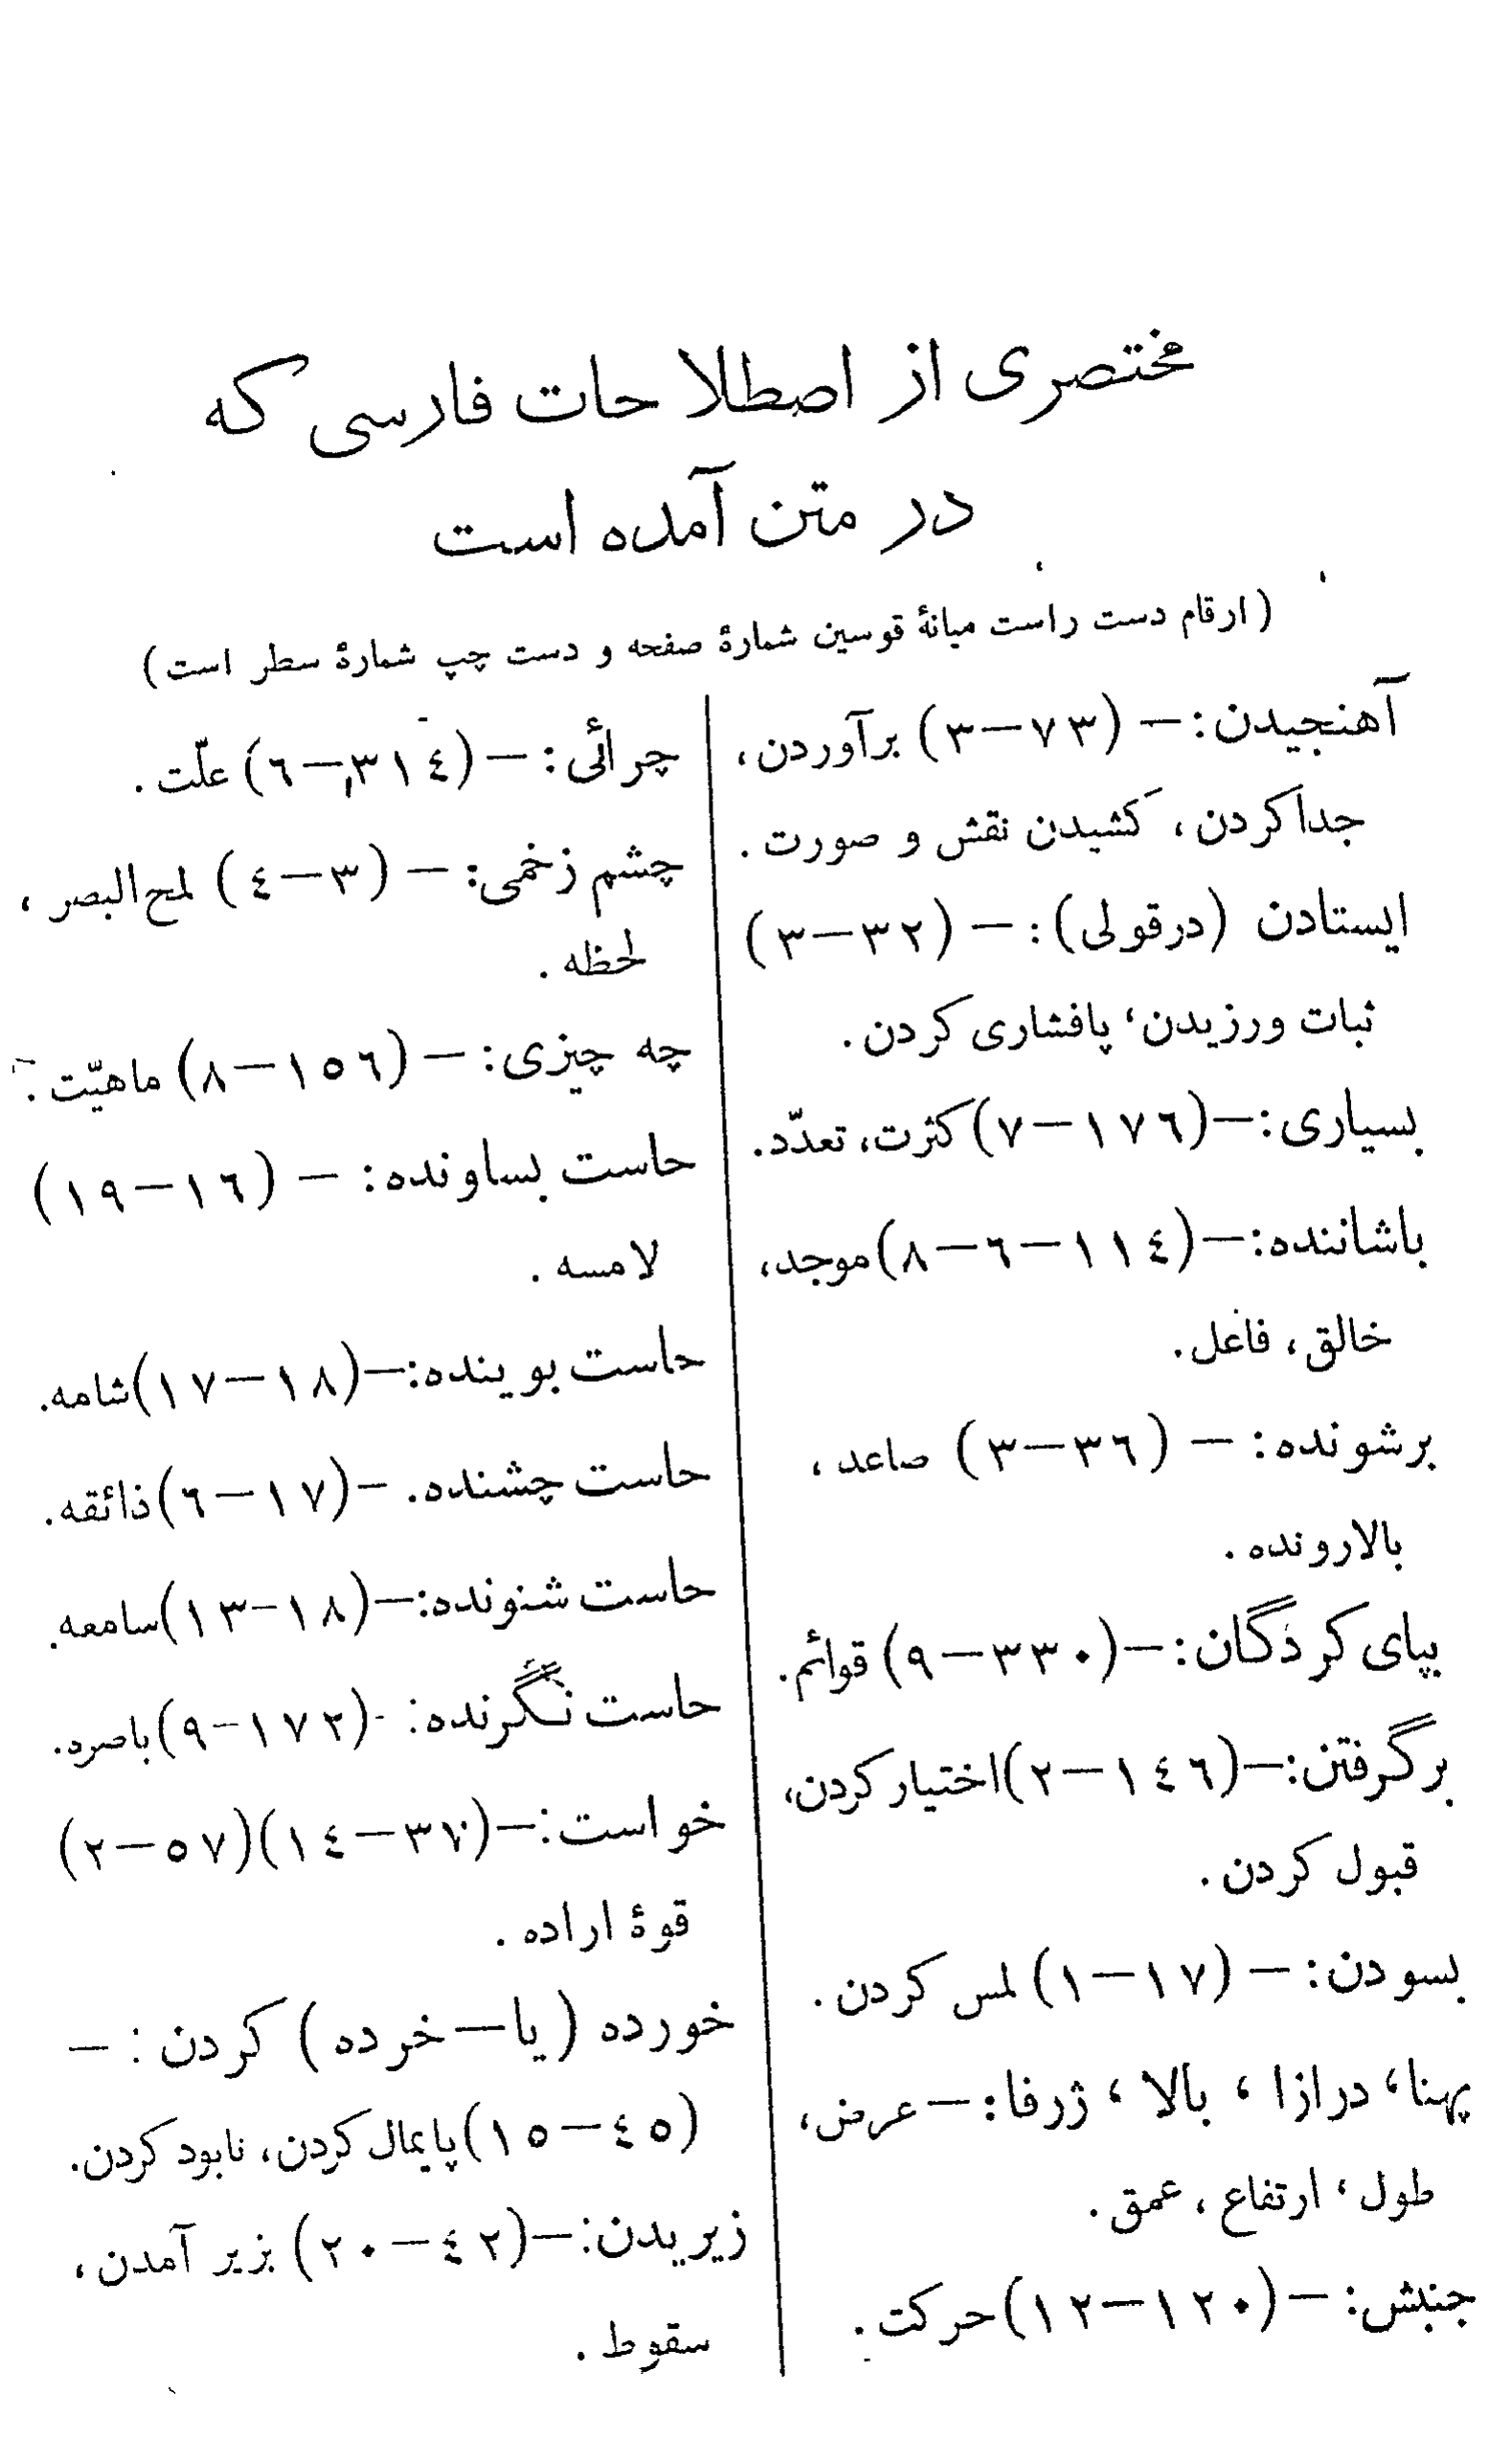 مختصری از اصطلاحات فارسی که
در متن آمده است
(ارقام دست راست میانهٔ قوسین شمارهٔ صفحه و دست چپ شمارهٔ سطر است)
آهنجیدن:— (۷۳—۳) برآوردن،
جداکردن، کشیدن نقش و صورت.
ایستادن (درقولی):— (۳۲—۳)
ثبات ورزیدن، پافشاری کردن.
بسیاری:—(۱۷۶—۷)کثرت، تعدّد.
باشاننده:—(۱۱٤—٦—۸)موجد،
خالق، فاعل.
برشونده:— (۳٦—۳) صاعد،
بالارونده.
بپای کردگان:—(۳۳۰—۹) قوائم.
برگرفتن:—(۱٤٦—۲)اختیارکردن،
قبول کردن.
بسودن:— (۱۷—۱) لمس کردن.
پهنا، درازا، بالا، ژرفا:— عرض،
طول، ارتفاع، عمق.
جنبش:— (۱۲۰—۱۲)حرکت.
چرائی:— (۳۱٤—٦) علّت.
چشم زخمی:— (۳—٤) لمح‌البصر،
لحظه.
چه چیزی:— (۱٥٦—۸) ماهیّت.
حاست بساونده:— (۱٦—۱۹)
لامسه.
حاست بوینده:—(۱۸—۱۷)شامه.
حاست چشنده. -(۱۷—٦)ذائقه.
حاست شنونده:—(۱۸-۱۳)سامعه.
حاست نگرنده: -(۱۷۲-۹)باصره.
خواست:—(۳۷—۱٤)(٥۷—۲)
قوهٔ اراده.
خورده (یا—خرده) کردن:—
(٤٥—۱٥)پایمال کردن، نابود کردن.
زیریدن:—(٤۲—۲۰) بزیر آمدن،
سقوط.